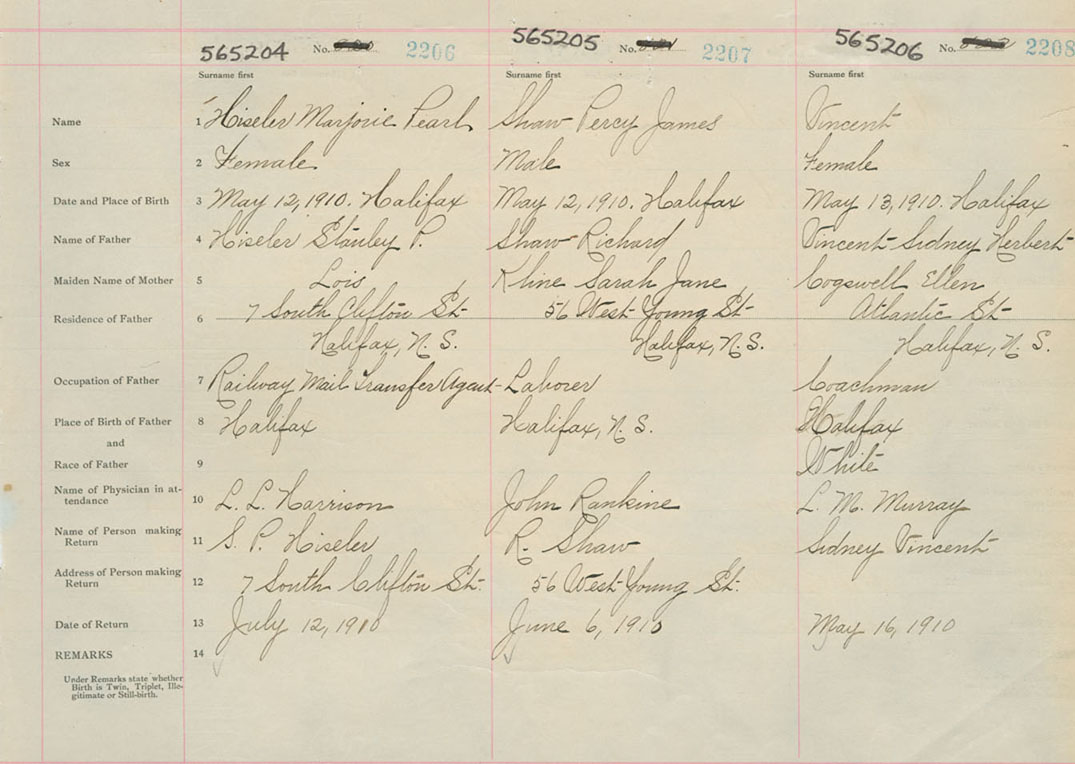 565204 No. 2206 565205 No. 2207 565206 No. 2208
Surname first Surname first Surname first
Name 1 Hiseler Marjorie Pearl Shaw Percy James Vincent
Sex 2 Female Male Female
Date and Place of Birth 3 May 12, 1910. Halifax May 12, 1910. Halifax May 13, 1910. Halifax
Name of Father 4 Hiseler Stanley P. Shaw Richard Vincent Sidney Herbert
Maiden Name of Mother 5 Lois Kline Sarah Jane Cogswell Ellen
Residence of Father 6 7 South Clifton St 56 West Young St Atlantic St
Halifax, N. S. Halifax, N. S. Halifax, N. S.
Occupation of Father 7 Railway Mail Transfer Agent Laborer Coachman
Place of Birth of Father 8 Halifax Halifax, N. S. Halifax
and
Race of Father 9 White
Name of Physician in at-
tendance 10 L. L. Harrison John Rankine L. M. Murray
Name of Person making
Return 11 S. P. Hiseler R. Shaw Sidney Vincent
Address of Person making
Return 12 7 South Clifton St. 56 West Young St.
Date of Return 13 July 12, 1910 June 6, 1910 May 16, 1910
REMARKS 14
Under Remarks state whether
Birth is Twin, Triplet, Ille-
gitimate or Still-birth.